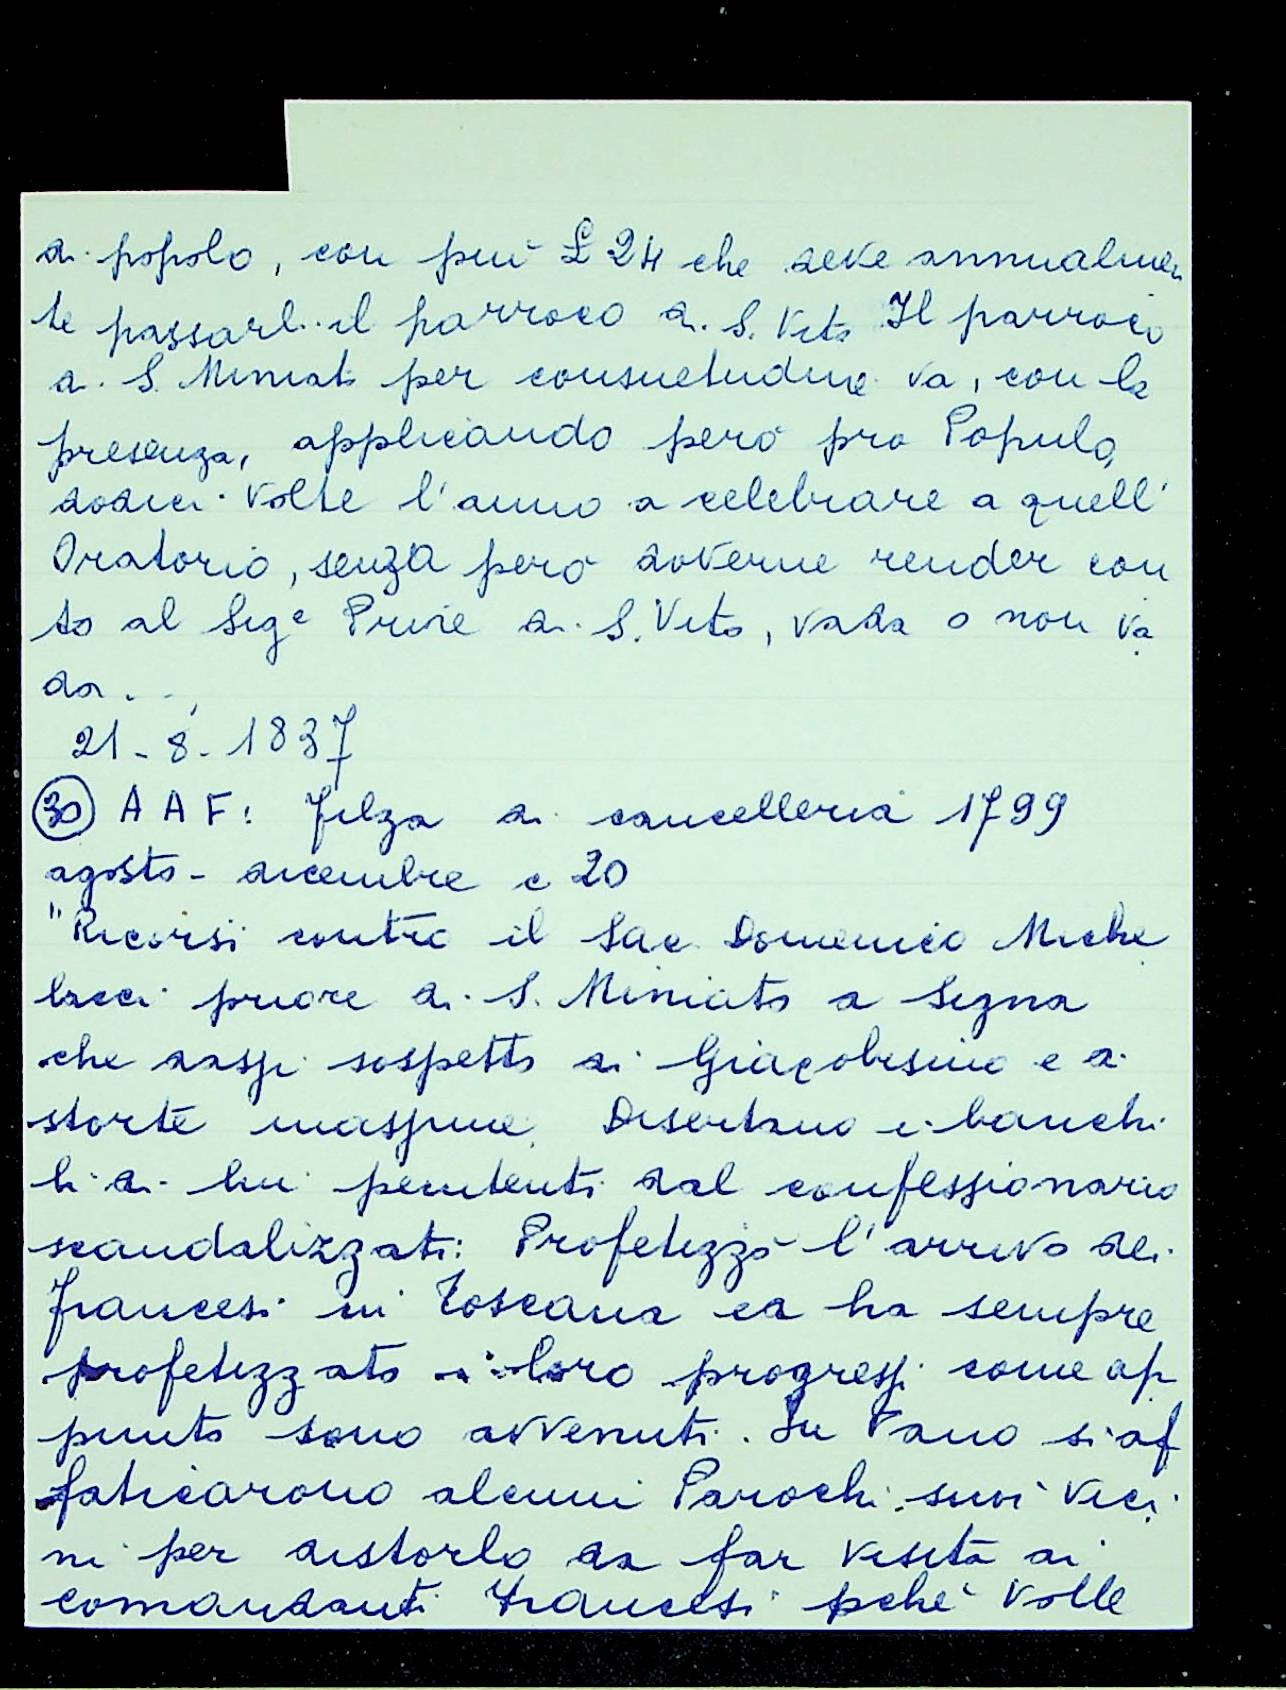 di popolo, con più £ 24 che deve annualmen
te passarli il parroco di S. Vito Il parroco
di S. Miniato per consuetudine va, con la
presenza, applicando però pro Populo,
dodici volte l'anno a celebrare a quell'
Oratorio, senza però doverne render con
to al Sige Priore di S. Vito, vada o non va
da...
21-8-1837
30 AAF: filza di cancelleria 1799
agosto - dicembre c 20
"Ricorsi contro il Sac Domenico Miche
lacci priore di S. Miniato a Signa
che dassi sospetto di Giacobismo e di
storte massime. Disertano i banchi
li di lui penitenti dal confessionario
scandalizzati: Profetizzò l'arrivo dei
francesi in Toscana ed ha sempre
profetizzato i loro progressi come ap
punto sono avvenuti. In vano si af
faticarono alcuni Parochi suoi vici
ni per distorlo da far visita ai
comandanti francesi pchè volle